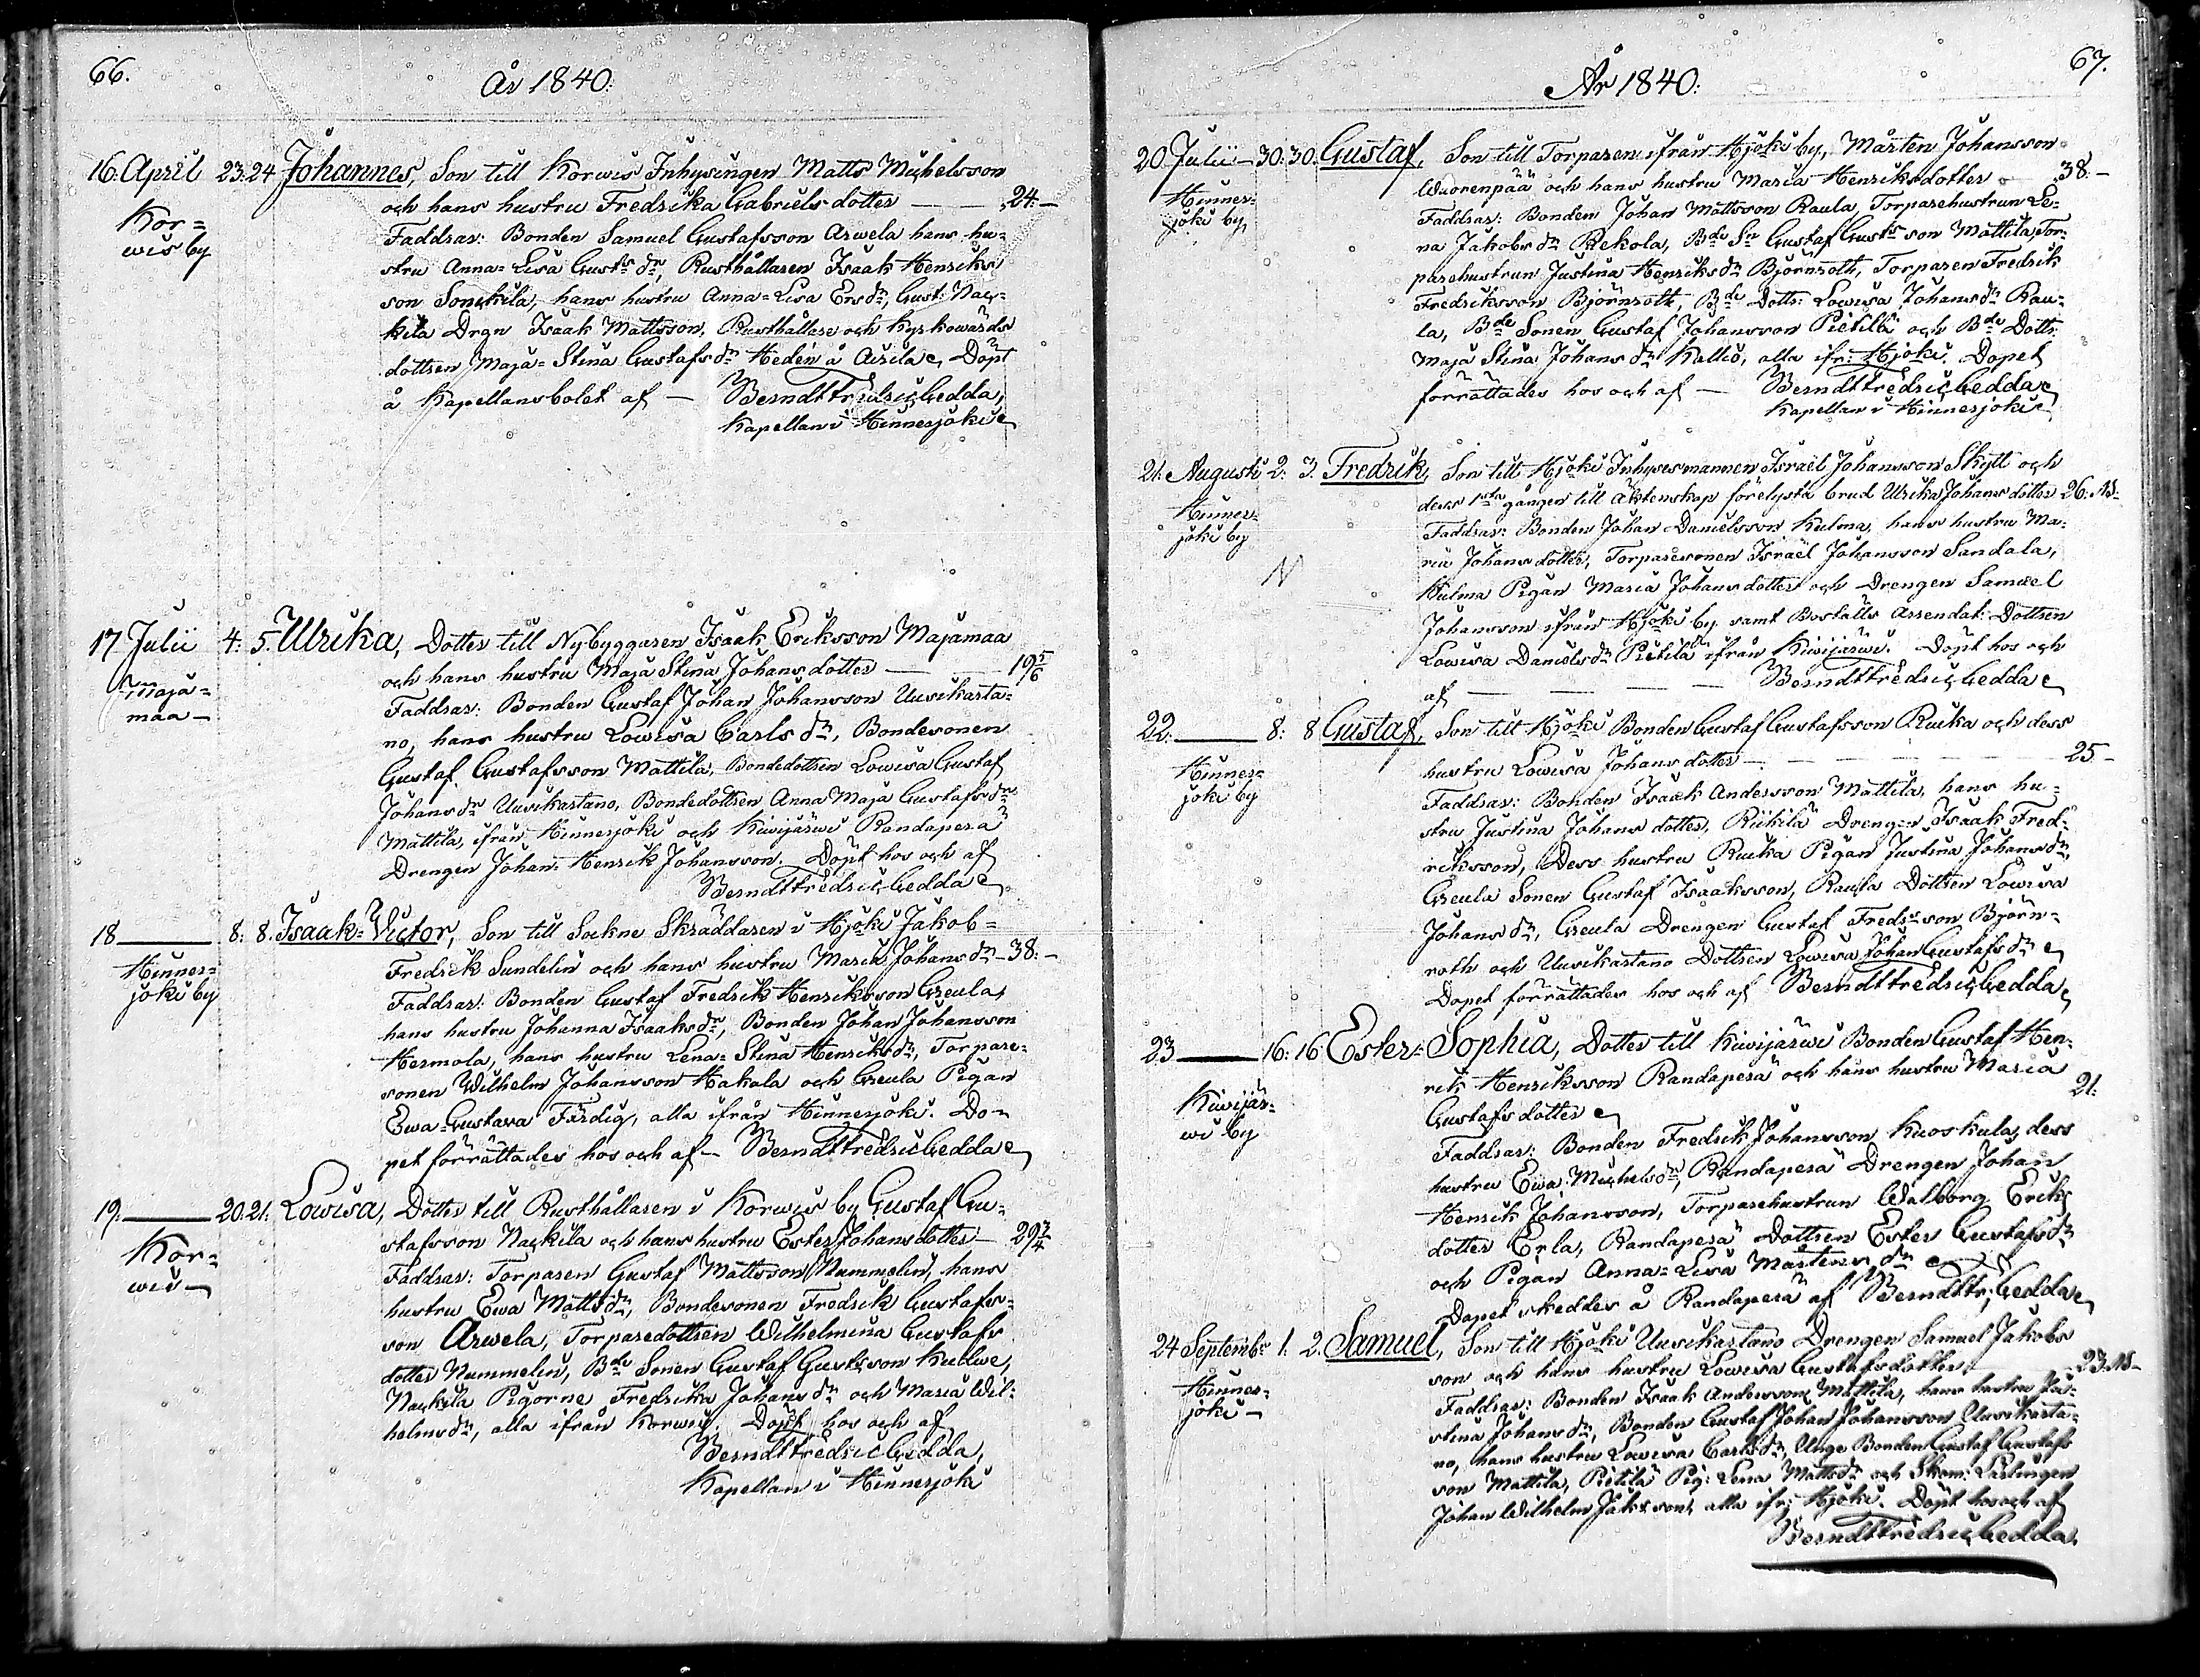 66.
År 1840:
16. April 23. 24 Johannes, Son till Korwis Inhysingen Matts Michelsson
och hans hustru Fredrika Gabriels dotter — 24.—
Kor=
wis by
Faddrar: Bonden Samuel Gustafsson Arwela hans hu=
stru Anna=Lisa Gustfs dr, Rusthållaren Isaak Henriks
son Sonckila, hans hustru Anna=Lisa Ersdr, Gust: Nac=
kila Drgn Isaak Mattsson, Rusthållare och Kyrkowärds
dottren Maja=Stina Gustafsdr Hedén å Airila. Döpt
å Kapellansbolet af — Berndt Fredric Gedda,
Kapellan i Hinnerjoki
17 Julii 4: 5. Ulrika, Dotter till Nybyggaren Isaak Eriksson Majamaa
och hans hustru Maja Stina Johans dotter — 19 5/6
Maja=
maa —
Faddrar: Bonden Gustaf Johan Johansson Uusikarta=
no, hans hustru Lowisa Carls dr, Bondesonen
Gustaf Gustafsson Mattila, Bondedottren Lowisa Gustaf
Johans dr Uusikartano, Bondedottren Anna Maja Gustafsdr
Mattila, ifrån Hinnerjoki och Kiwijärwi Randaperä
Drengen Johan Henrik Johansson. Döpt hos och af
Berndt Fredric Gedda
18 — 8: 8. Isaak=Victor, Son till Sockne Skräddaren i Hjoki Jakob=
Fredrik Sundelin och hans hustru Maria Johans dr — 38:—
Hinner=
joki by
Faddrar: Bonden Gustaf Fredrik Henriksson Greula,
hans hustru Johanna Isaaks dr, Bonden Johan Johansson
Hermola, hans hustru Lena=Stina Henriksdr, Torpare=
sonen Wilhelm Johansson Hakala och Greula Pigan
Ewa=Gustava Färdig, alla ifrån Hinnerjoki. Do=
pet förrättades hos och af — Berndt Fredric Gedda
19. — 20. 21. Lowisa, Dotter till Rusthållaren i Korwis by Gustaf Gu=
stafsson Nackila och hans hustru Ester Johans dotter — 29 3/4
Kor=
wis —
Faddrar: Torparen Gustaf Mattsson Nummelin, hans
hustru Ewa Matts dr, Bondesonen Fredrik Gustafs=
son Arwela, Torparedottren Wilhelmina Gustafs
dotter Nummelin, Bde Sonen Gustaf Gustfsson Kudwe,
Nackila Pigorne Fredrika Johans dr och Maria Wil=
helmsdr, alla ifrån Korwis. Döpt hos och af
Berndt Fredric Gedda,
Kapellan i Hinnerjoki
67.
År 1840:
20. Julii — 30: 30. Gustaf, Son till Torparen ifrån Hjoki by, Mårten Johansson
Wuorenpää och hans hustru Maria Henriksdotter — 38:—
Hinner=
joki by
Faddrar: Bonden Johan Mattsson Raula, Torparehustrun Le=
na Jakobs dr Rekola, Bde Sn Gustaf Gustfsson Mattila, Tor=
parehustrun Justina Henriksdr Björnroth, Torparen Fredrik
Fredriksson Björnroth, Bde Dottr: Lowisa Johansdr Rau=
la, Bde Sonen Gustaf Johansson Pietilä och Bde Dottr
Maja Stina Johans dr Kallio, alla ifr: Hjoki. Dopet
förrättades hos och af — Berndt Fredric Gedda
Kapellan i Hinnerjoki
21. Augusti 2: 3. Fredrik, Son till Hjoki Inhysesmannen Israël Johansson Skytt och
dess 1sta gången till äktenskap förelysta brud Ulrika Johans dotter 26.
Hinner=
joki by
Faddrar: Bonden Johan Danielsson Kulma, hans hustru Ma=
ria Johans dotter, Torparesonen Israël Johansson Sandala,
N
Kulma Pigan Maria Johansdotter och Drengen Samuel
Johansson ifrån Hjoki by samt Boställs Arrendat: Dottren
Lowisa Danielsdr Pietilä ifrån Kiwijärwi. Döpt hos och
af — Berndt Fredric Gedda
22. — 8: 8 Gustaf, Son till Hjoki Bonden Gustaf Gustafsson Ruika och dess
hustru Lowisa Johans dotter — 25 —
Hinner=
joki by
Faddrar: Bonden Isaak Andersson Mattila, hans hu=
stru Justina Johans dotter, Riikilä Drengen Isaak Fred=
riksson, Dess hustru Ruika Pigan Justina Johansdr,
Greula Sonen Gustaf Isaaksson, Raula Dottren Lowisa
Johans dr, Greula Drengen Gustaf Fredrsson Björn=
roth och Uusikartano Dottren Lowisa Johan Gustafs dr
Dopet förrättades hos och af Berndt Fredric Gedda
23 — 16: 16 Ester=Sophia, Dotter till Kiwijärwi Bonden Gustaf Hen=
rik Henriksson Randaperä och hans hustru Maria
Gustafs dotter 21.
Kiwijär=
wi by
Faddrar: Bonden Fredrik Johansson Kuoskula, dess
hustru Ewa Michelsdr, Randaperä Drengen Johan
Henrik Johansson, Torparehustrun Walborg Eriks
dotter Erla, Randaperä Dottren Ester Gustafsdr
och Pigan Anna=Lisa Mårtens dr
Dopet skeddes å Randaperä af Berndt Fr: Gedda
24 Septembr 1. 2. Samuel, Son till Hjoki Uusikartano Drengen Samuel Jakobs
son och hans hustru Lowisa Gustafsdotter — 23.
Hinner=
joki —
Faddrar: Bonden Isaak Andersson Mattila, hans hustru Ju=
stina Johansdr, Bonden Gustaf Johan Johansson Uusikarta=
no, hans hustru Lowisa Carlsdr, Unge Bonden Gustaf Gustafs
son Mattila, Pietilä Pig: Lena Mattsdr och Skom: Lärlingen
Johan Wilhelm Jakssont alla ifr: Hjoki. Döpt hos och af
Berndt Fredric Gedda.